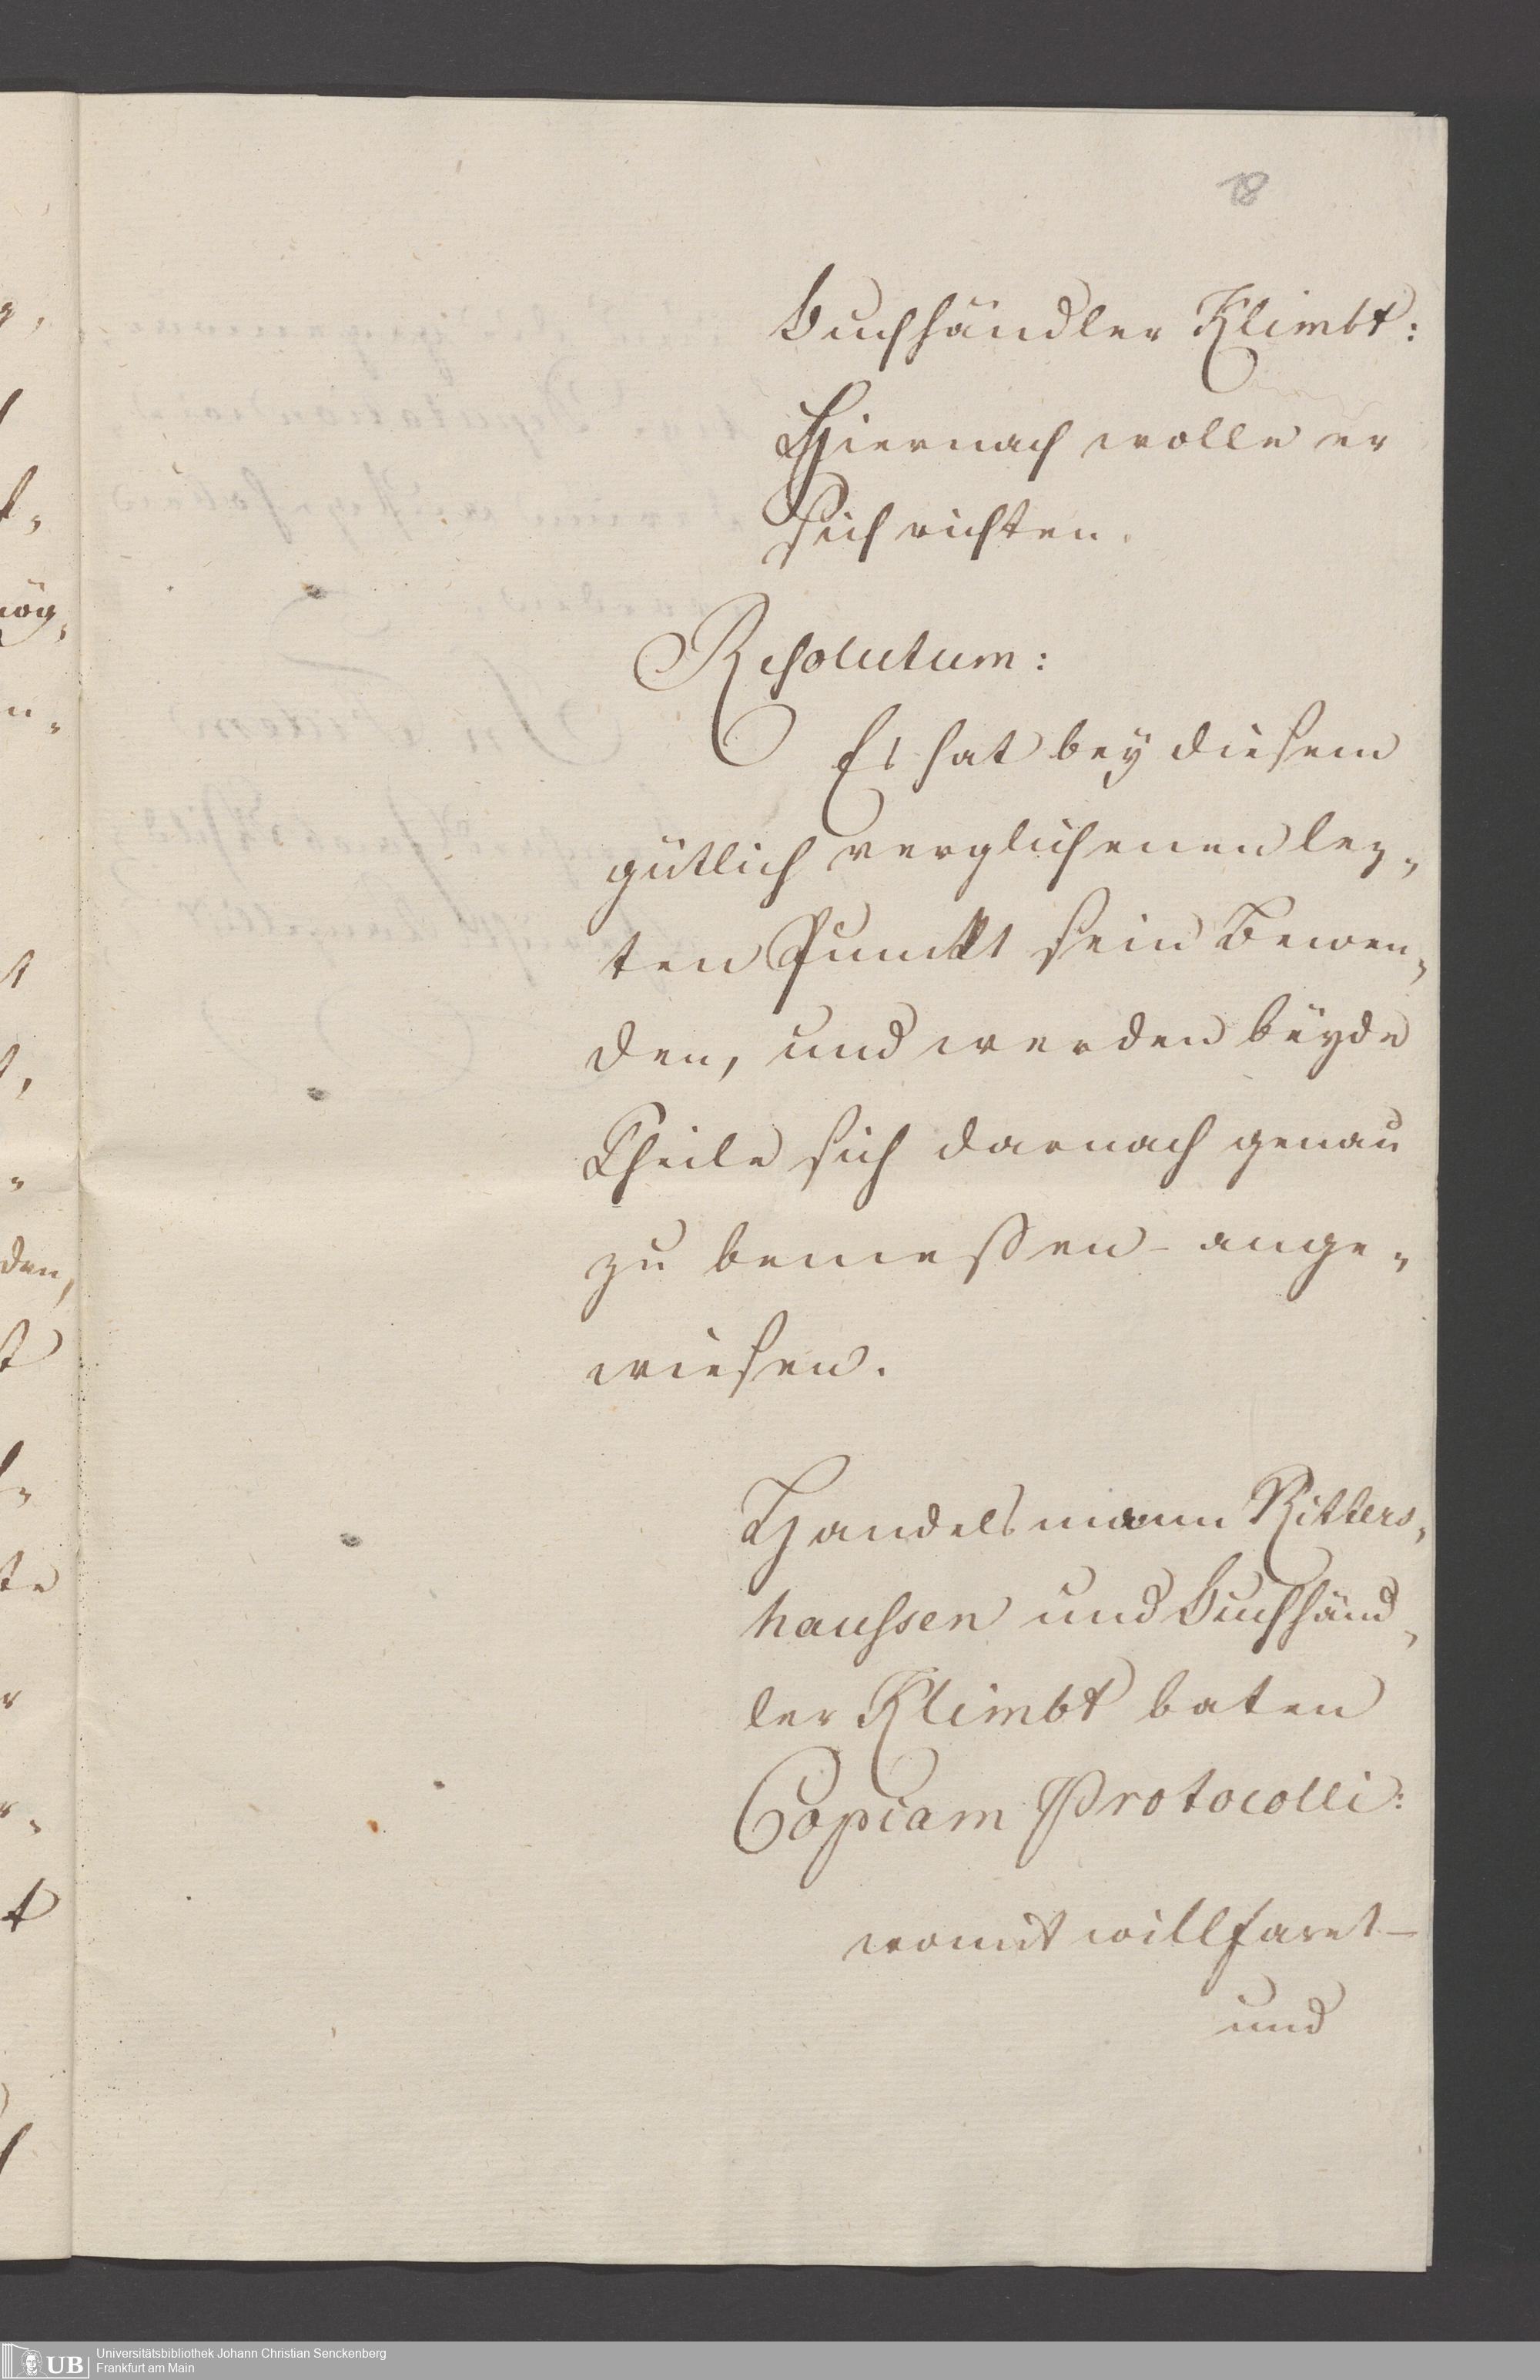 18
Buchhändler Klimbt:
Hiernach wolle er
sich richten.
Resolutum:
Es hat bey diesem
gütlich verglichenen lez„
ten Punkt sein Bewen„
den, und werden beyde
Theile sich darnach genau
zu bemessen - ange„
wiesen.
Handelsmann Ritters„
haussen und Buchhänd„
ler Klimbt baten
Copiam Protocolli:
womit willfaret -
und
UB Universitätsbibliothek Johann Christian Senckenberg
Frankfurt am Main